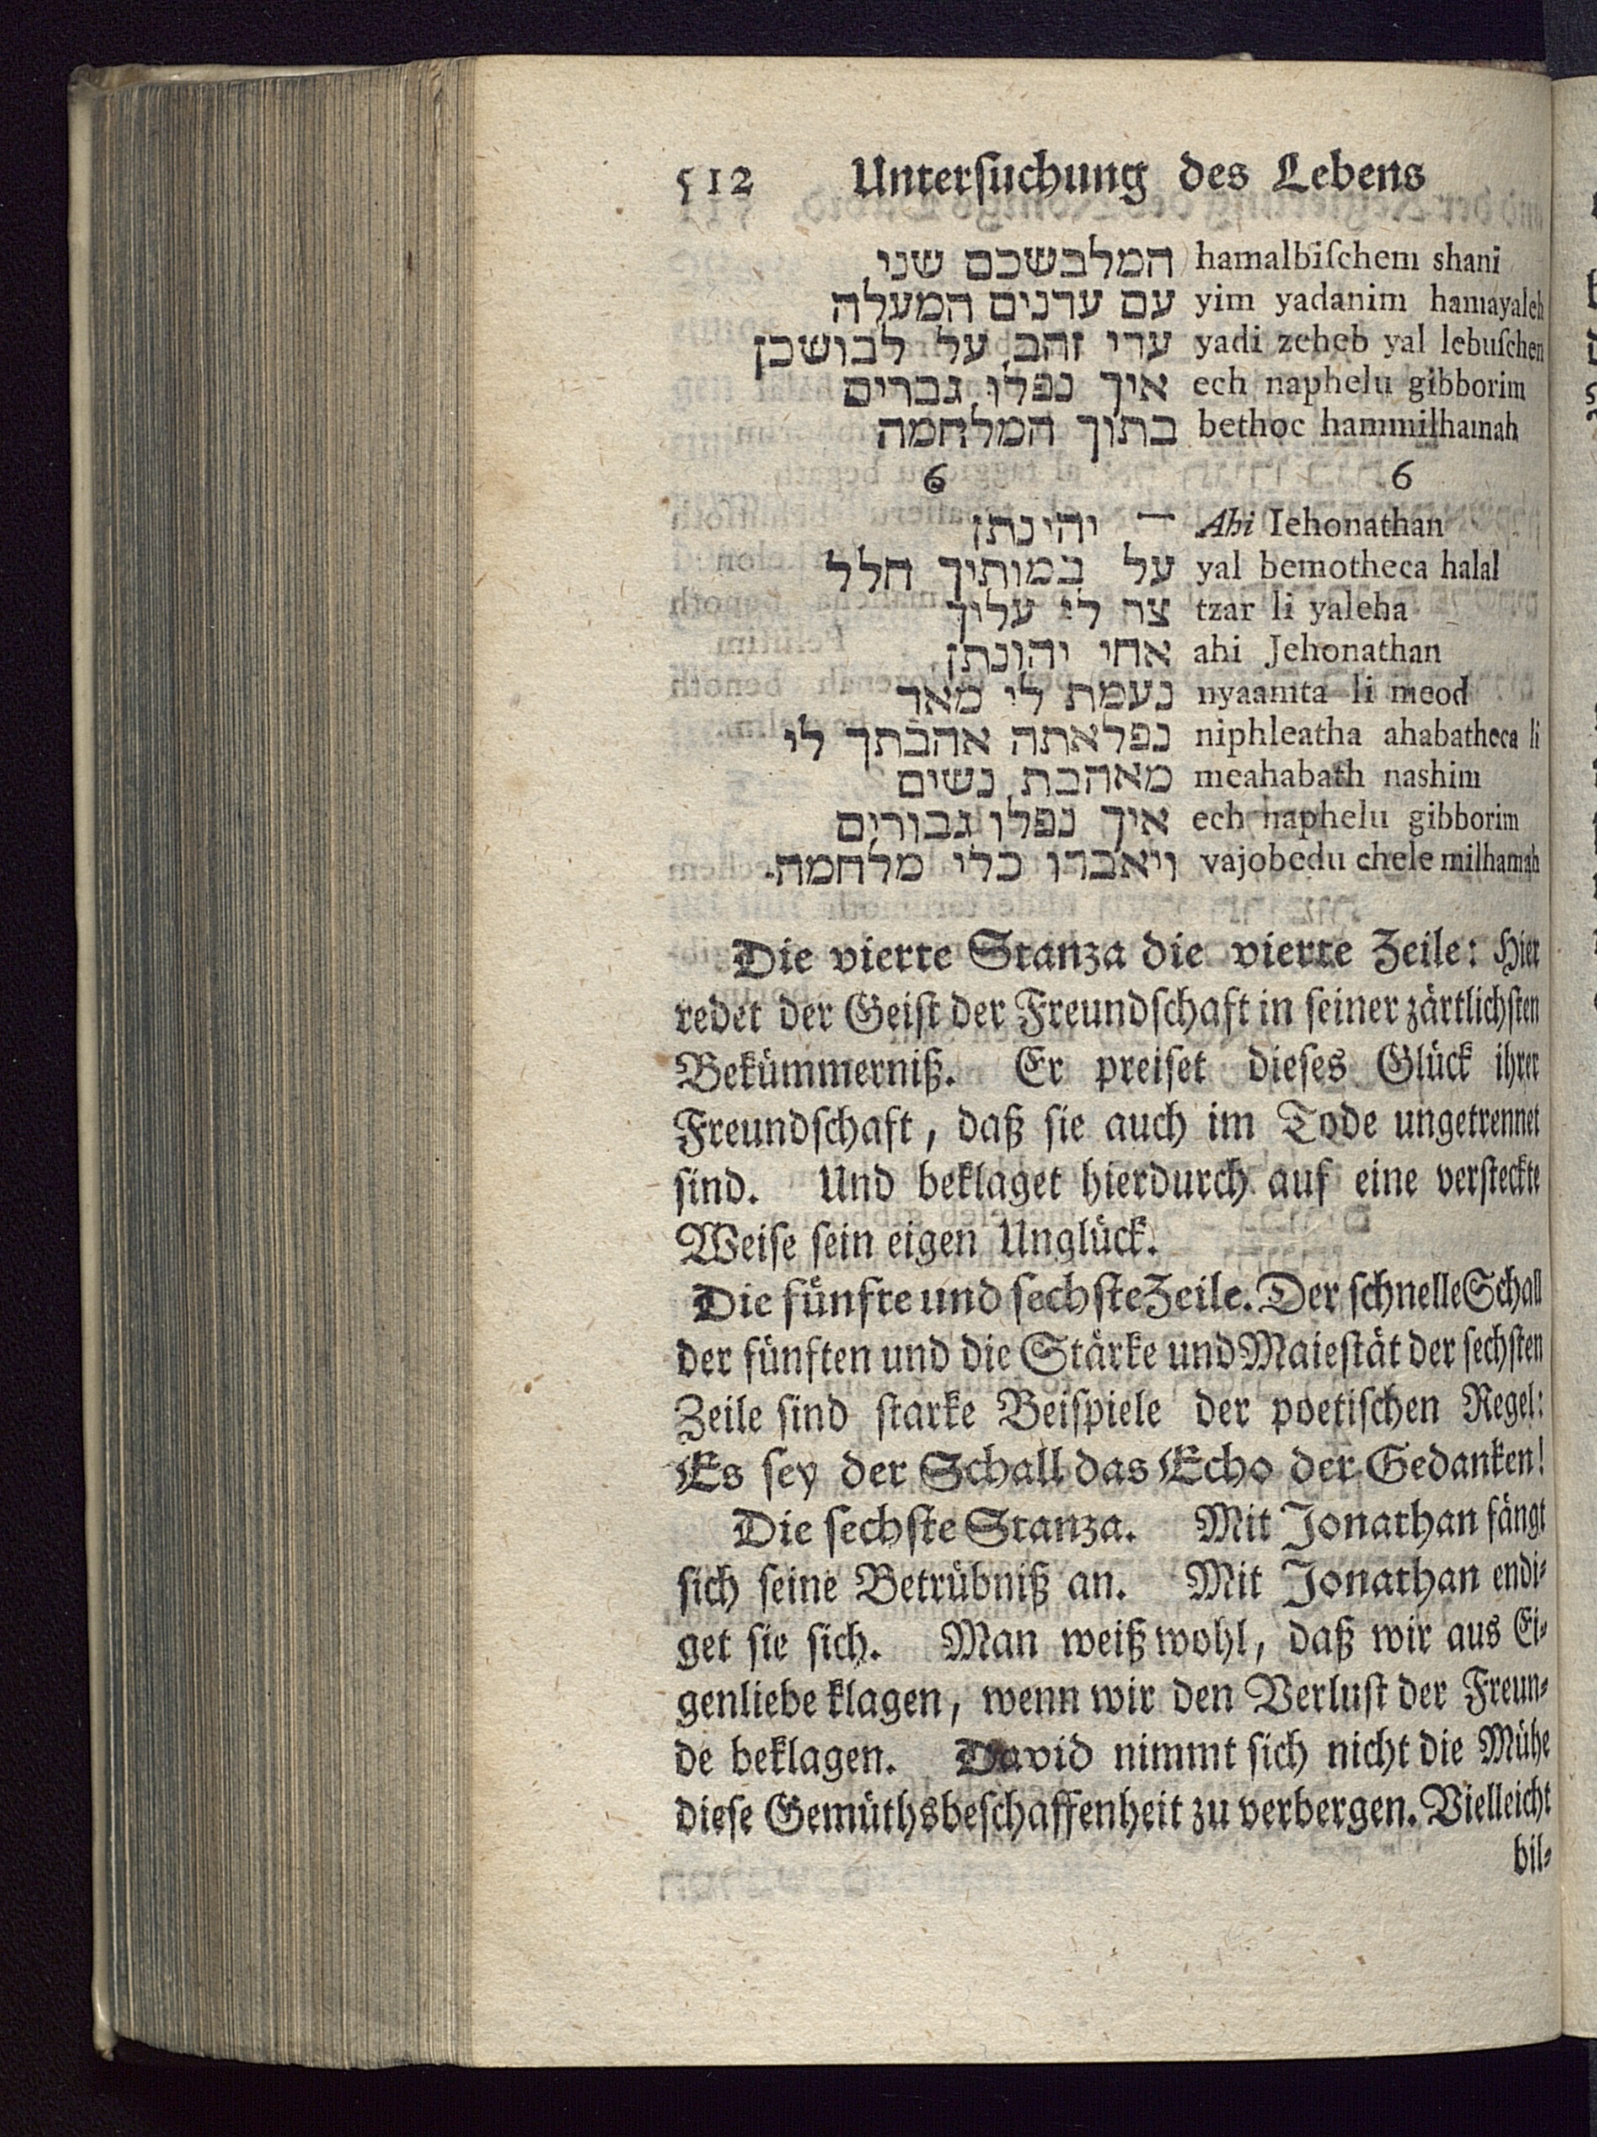 512 Unterſuchung des Lebens
המלבשכם שני hamalbiſchem shani
עם ערנים המעלה yim yadanim hamayaleh
ערי זהב על לבושכן yadi zeheb yal lebuſchen
איך נפלו גברים ech naphelu gibborim
בתוך המלחמה bethoc hammilhamah
6 6
— יהינתן Ahi Iehonathan
על במותיך חלל yal bemotheca halal
צר לי עליך tzar li yaleha
אחי יהונתן ahi Jehonathan
נעמת לי מאד nyaamta li meod
נפלאתה אהבתך לי niphleatha ahabatheca li
מאהבת נשים meahabath nashim
איך נפלו גבורים ech naphelu gibborim
ויאברו כלי מלחמה. vajobedu chele milhamah
Die vierte Stanza die vierte Zeile: Hier
redet der Geiſt der Freundſchaft in ſeiner zärtlichſten
Bekümmerniß. Er preiſet dieſes Glück ihrer
Freundſchaft, daß ſie auch im Tode ungetrennet
ſind. Und beklaget hierdurch auf eine verſteckte
Weiſe ſein eigen Unglück.
Die fünfte und ſechſte Zeile. Der ſchnelle Schall
der fünften und die Stärke und Maieſtät der ſechſten
Zeile ſind ſtarke Beiſpiele der poetiſchen Regel:
Es ſey der Schall das Echo der Gedanken!
Die ſechſte Stanza. Mit Jonathan fängt
ſich ſeine Betrübniß an. Mit Jonathan endi-
get ſie ſich. Man weiß wohl, daß wir aus Ei-
genliebe klagen, wenn wir den Verluſt der Freun-
de beklagen. David nimmt ſich nicht die Mühe
dieſe Gemüthsbeſchaffenheit zu verbergen. Vielleicht
bil-